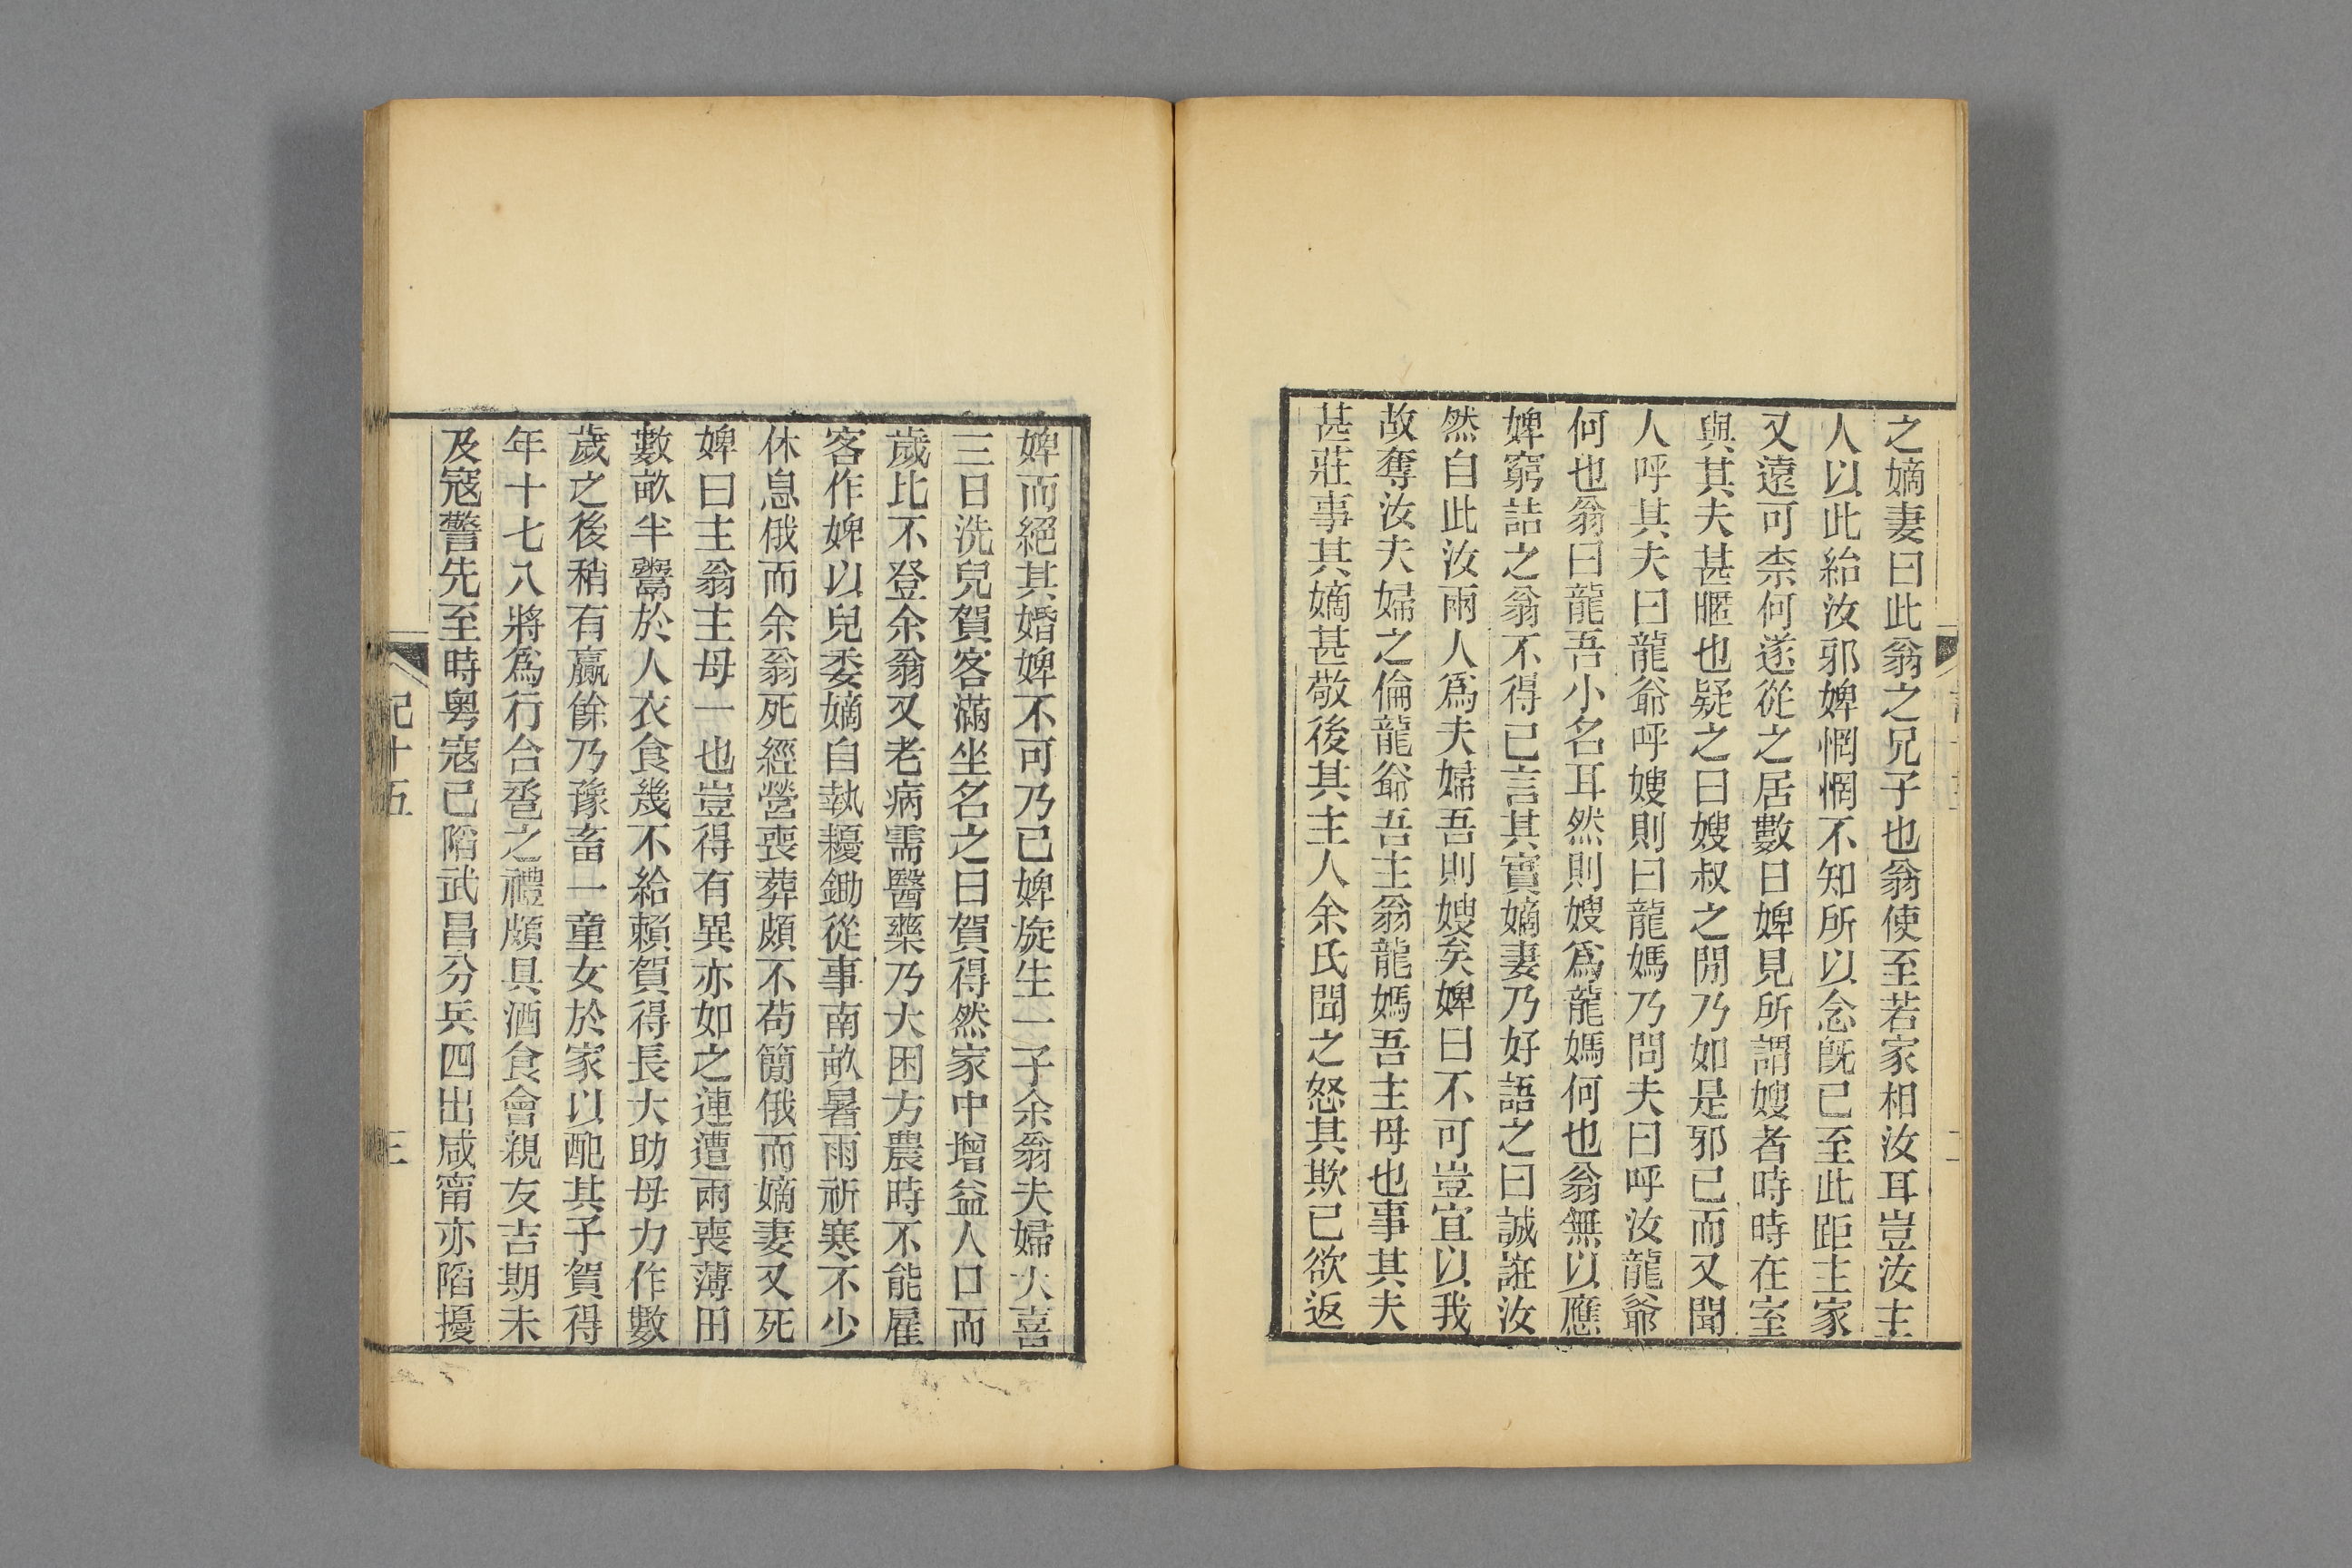 之嫡妻曰此翁之兄子也翁使至若家相汝耳豈汝主
人以此紿汝邪婢惘惘不知所以念旣已至此距主家
又遠可柰何遂從之居數日婢見所謂嫂者時時在室
與其夫甚暱也疑之曰嫂叔之閒乃如是邪已而又聞
人呼其夫曰龍爺呼嫂則曰龍媽乃問夫曰呼汝龍爺
何也翁曰龍吾小名耳然則嫂爲龍媽何也翁無以應
婢窮詰之翁不得已言其實嫡妻乃好語之曰誠誑汝
然自此汝兩人爲夫婦吾則嫂矣婢曰不可豈宜以我
故奪汝夫婦之倫龍爺吾主翁龍媽吾主母也事其夫
甚莊事其嫡甚敬後其主人余氏聞之怒其欺已欲返
婢而絕其婚婢不可乃已婢旋生一子余翁夫婦大喜
三日洗兒賀客滿坐名之曰賀得然家中增益人口而
歲比不登余翁又老病需醫藥乃大困方農時不能雇
客作婢以兒委嫡自執耰鋤從事南畝暑雨祈寒不少
休息俄而余翁死經營喪葬頗不苟簡俄而嫡妻又死
婢曰主翁主母一也豈得有異亦如之連遭兩喪薄田
數畝半鬻於人衣食幾不給賴賀得長大助母力作數
歲之後稍有贏餘乃豫畜一童女於家以配其子賀得
年十七八將爲行合卺之禮頗具酒食會親友吉期未
及寇警先至時粵寇已陷武昌分兵四出咸甯亦陷擾
記十五
三